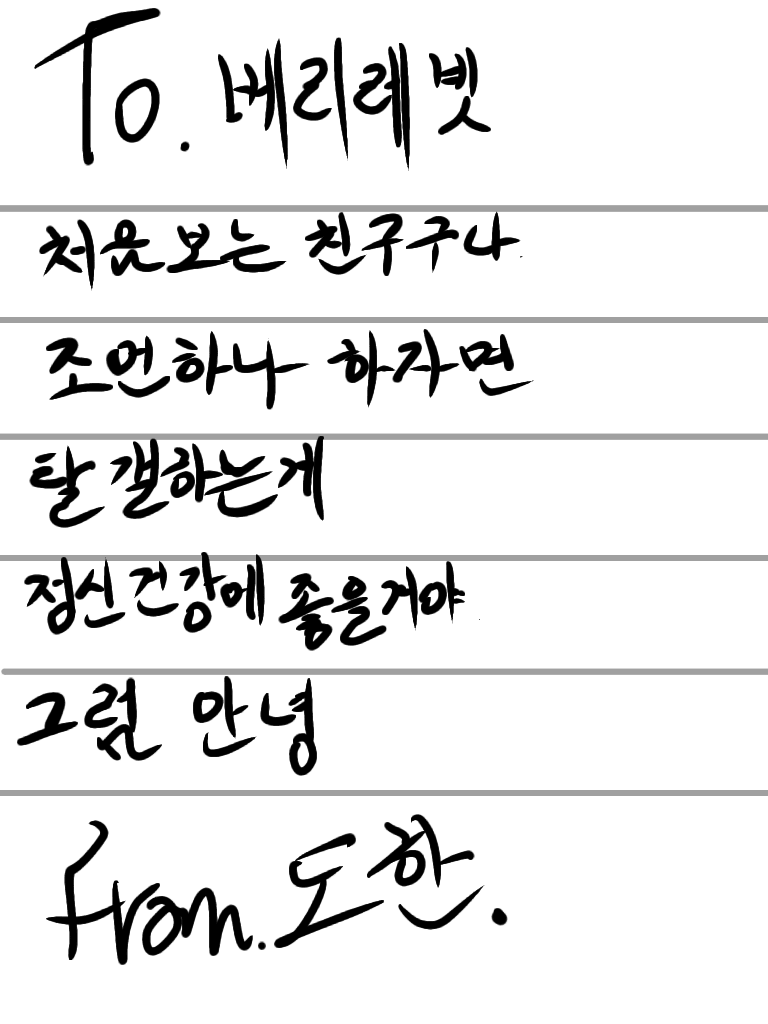 To. 베리레빗
처음보는 친구구나.
조언하나 하자면
탈갤하는게
정신건강에 좋을거야.
그럼 안녕
from. 도한.